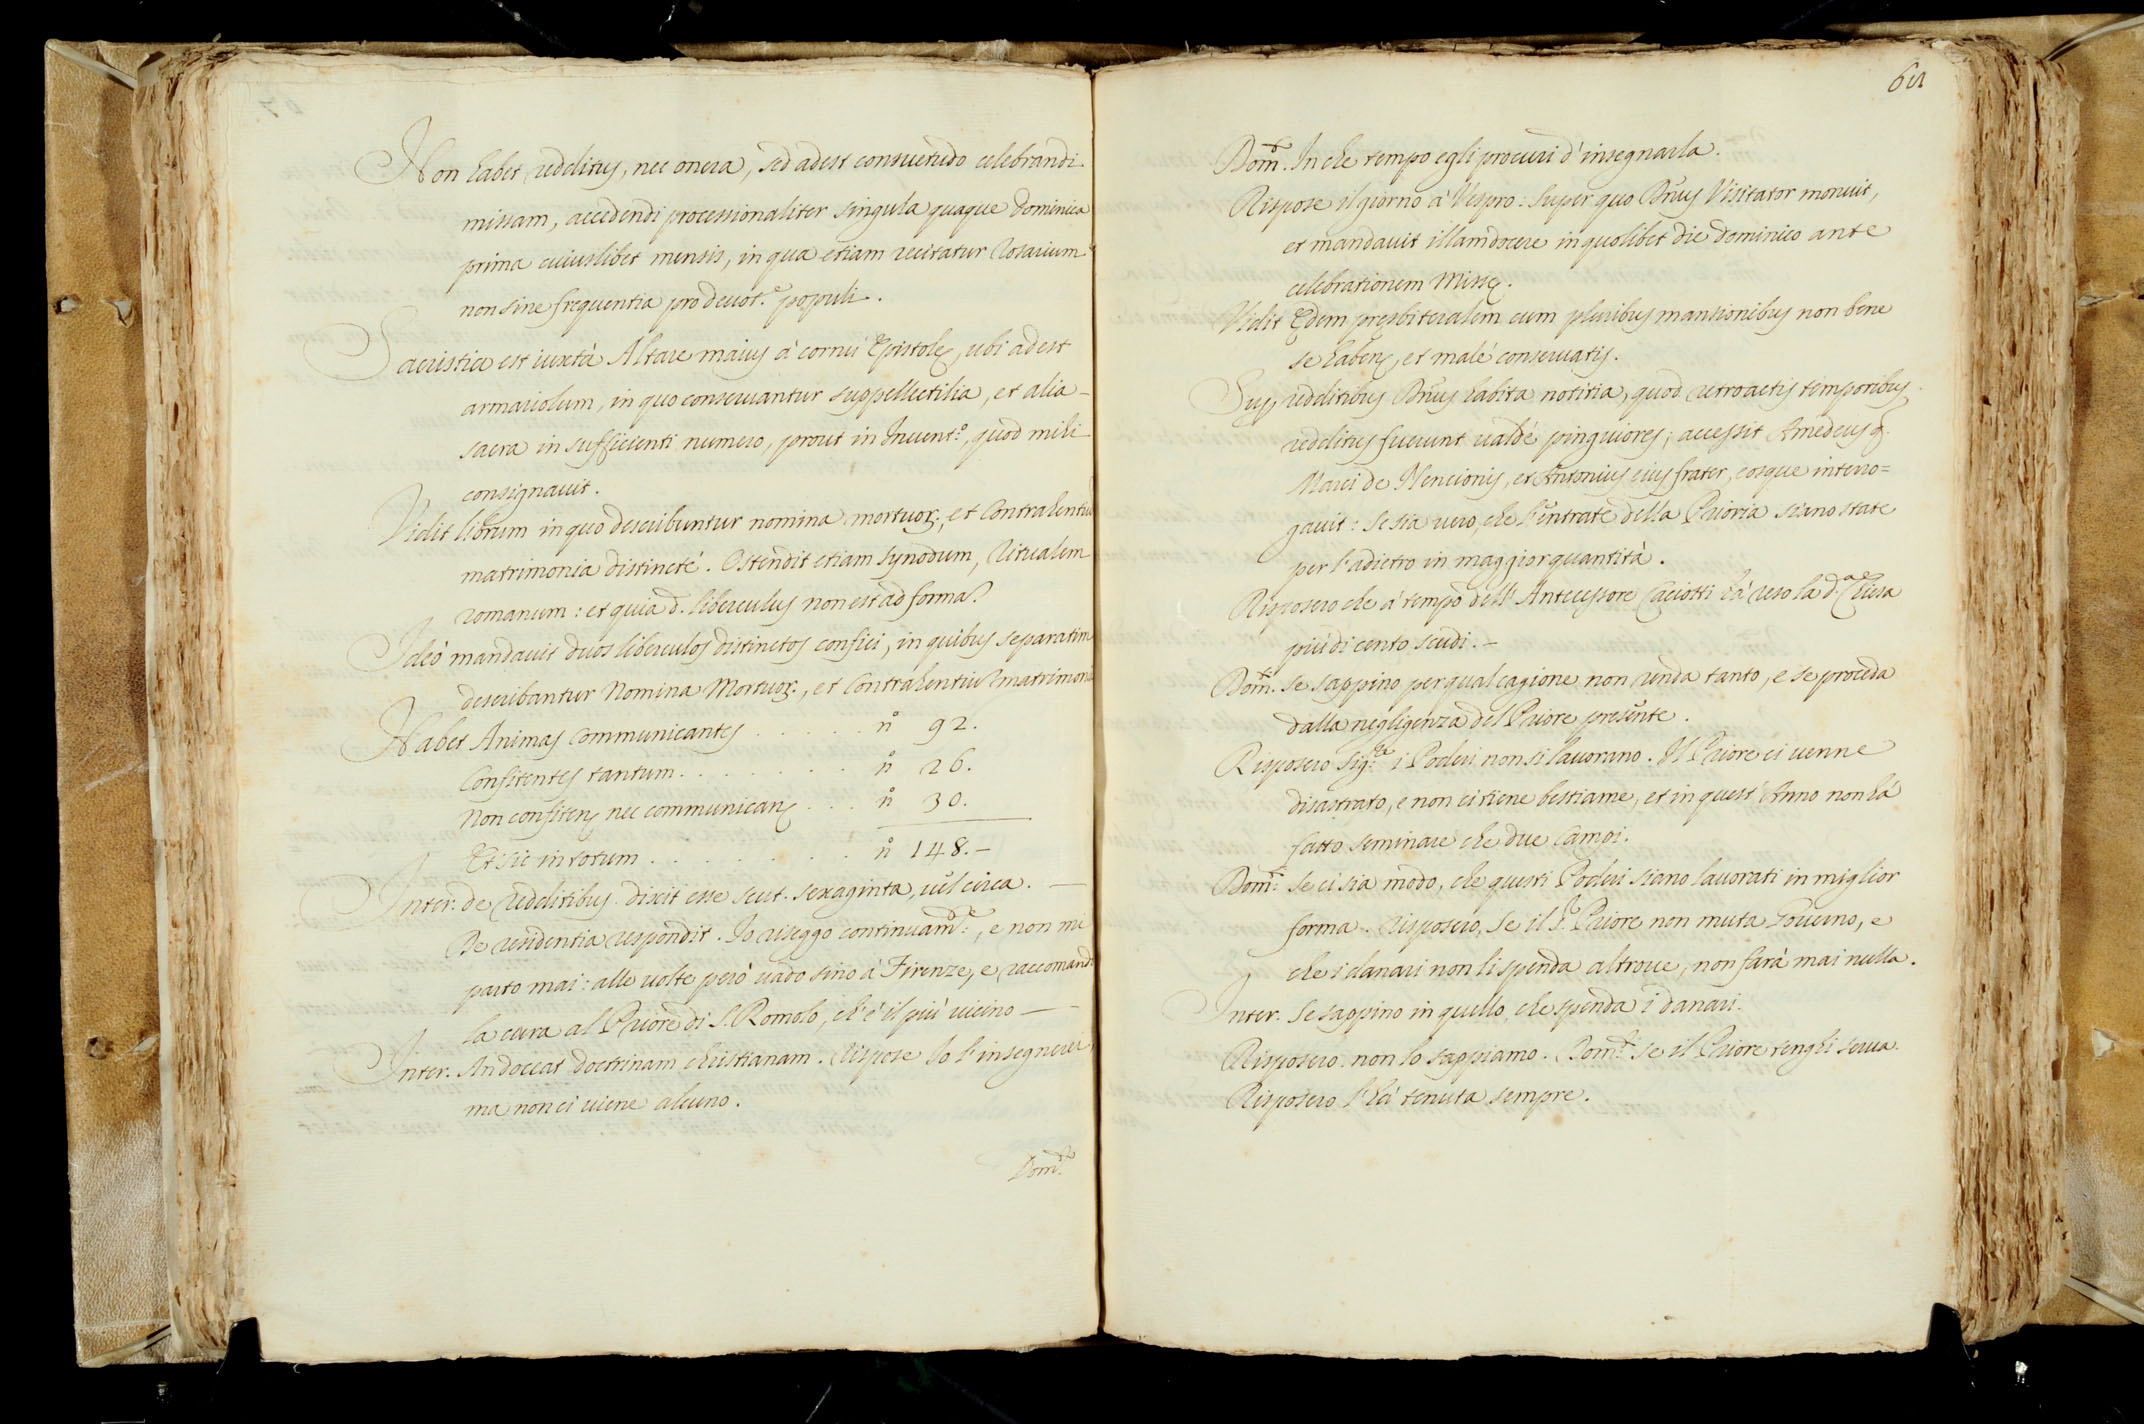 Non habet redditus, nec onera, sed adest consuetudo celebrandi
missam, accedendi processionaliter singula quaque dominica
prima cuiuslibet mensis, in qua etiam recitatur Rosarium
non sine frequentia pro devot.e populi.
Sacristia est iuxtà Altare maius à cornù Epistolę, ubi adest
armariolum, in quo conservantur suppellectilia, et alia
sacra in sufficienti numero, prout in Invent.o, quod mihi
consignavit.
Vidit librum in quo describuntur nomina mortuor., et Contrahentiu
matrimonia distincté. Ostendit etiam Synodum, Ritualem
romanum: et quia d. liberculus non est ad forma
Ideò mandavit duos liberculos distinctos confici, in quibus separatim
describantur Nomina Mortuor., et Contrahentiu matrimoni
Habet Animas Communicantes . . . . . n.o 92.
Confitentes tantum . . . . . . . n.o 26.
Non confiten. nec communican. . . . n.o 30.
Et sic in totum . . . . . . . . n.o 148.-
Inter. de redditibus dixit esse scut. sexaginta, vel circa. —
De residentia respondit. Io riseggo continuam.te, e non mi
parto mai: alle volte però vado sino à Firenze, e raccomand.
la cura al Priore di S. Romolo, ch'è il più vicino —
Inter. An doceat doctrinam christianam. Rispose Io l'insegnerei,
ma non ci viene alcuno.
Dom.to
61
Dom.to In che tempo egli procuri d'insegnarla.
Rispose il giorno à Vespro: super quo Dnus Visitator monuit,
et mandavit illam docere in quolibet die dominico ante
celebrationem Missę.
Vidit Ędem pręsbiteralem cum pluribus mansionibus non bene
se haben., et malé conservatis.
Sup. redditibus Dnus habita notitia, quod retroactis temporibus
redditus fuerunt valdé pinguiores; accessit Amedeus q.
Marci de Nencionis, et Antonius eius frater, eosque interro=
gavit: se sia vero, che l'entrate della Prioria siano state
per l'adietro in maggior quantità.
Risposero che à tempo dell'Antecessore Caciotti hà reso la d.a Chiesa
più di cento scudi. -
Dom.to se sappino per qual cagione non renda tanto, e se proceda
dalla negligenza del Priore presente.
Risposero Sig.r i Poderi non si lavorano. Il Priore ci venne
disastrato, e non ci tiene bestiame, et in quest'Anno non hà
fatto seminare che due Campi.
Dom.to se ci sia modo, che questi Poderi siano lavorati in miglior
forma. risposero, Se il S.r Priore non muta Governo, e
che i danari non li spenda altrove, non farà mai nulla.
Inter. se sappino in quello che spenda i danari.
Risposero. non lo sappiamo. Dom.to se il Priore tenghi serva.
Risposero l'hà tenuta sempre.